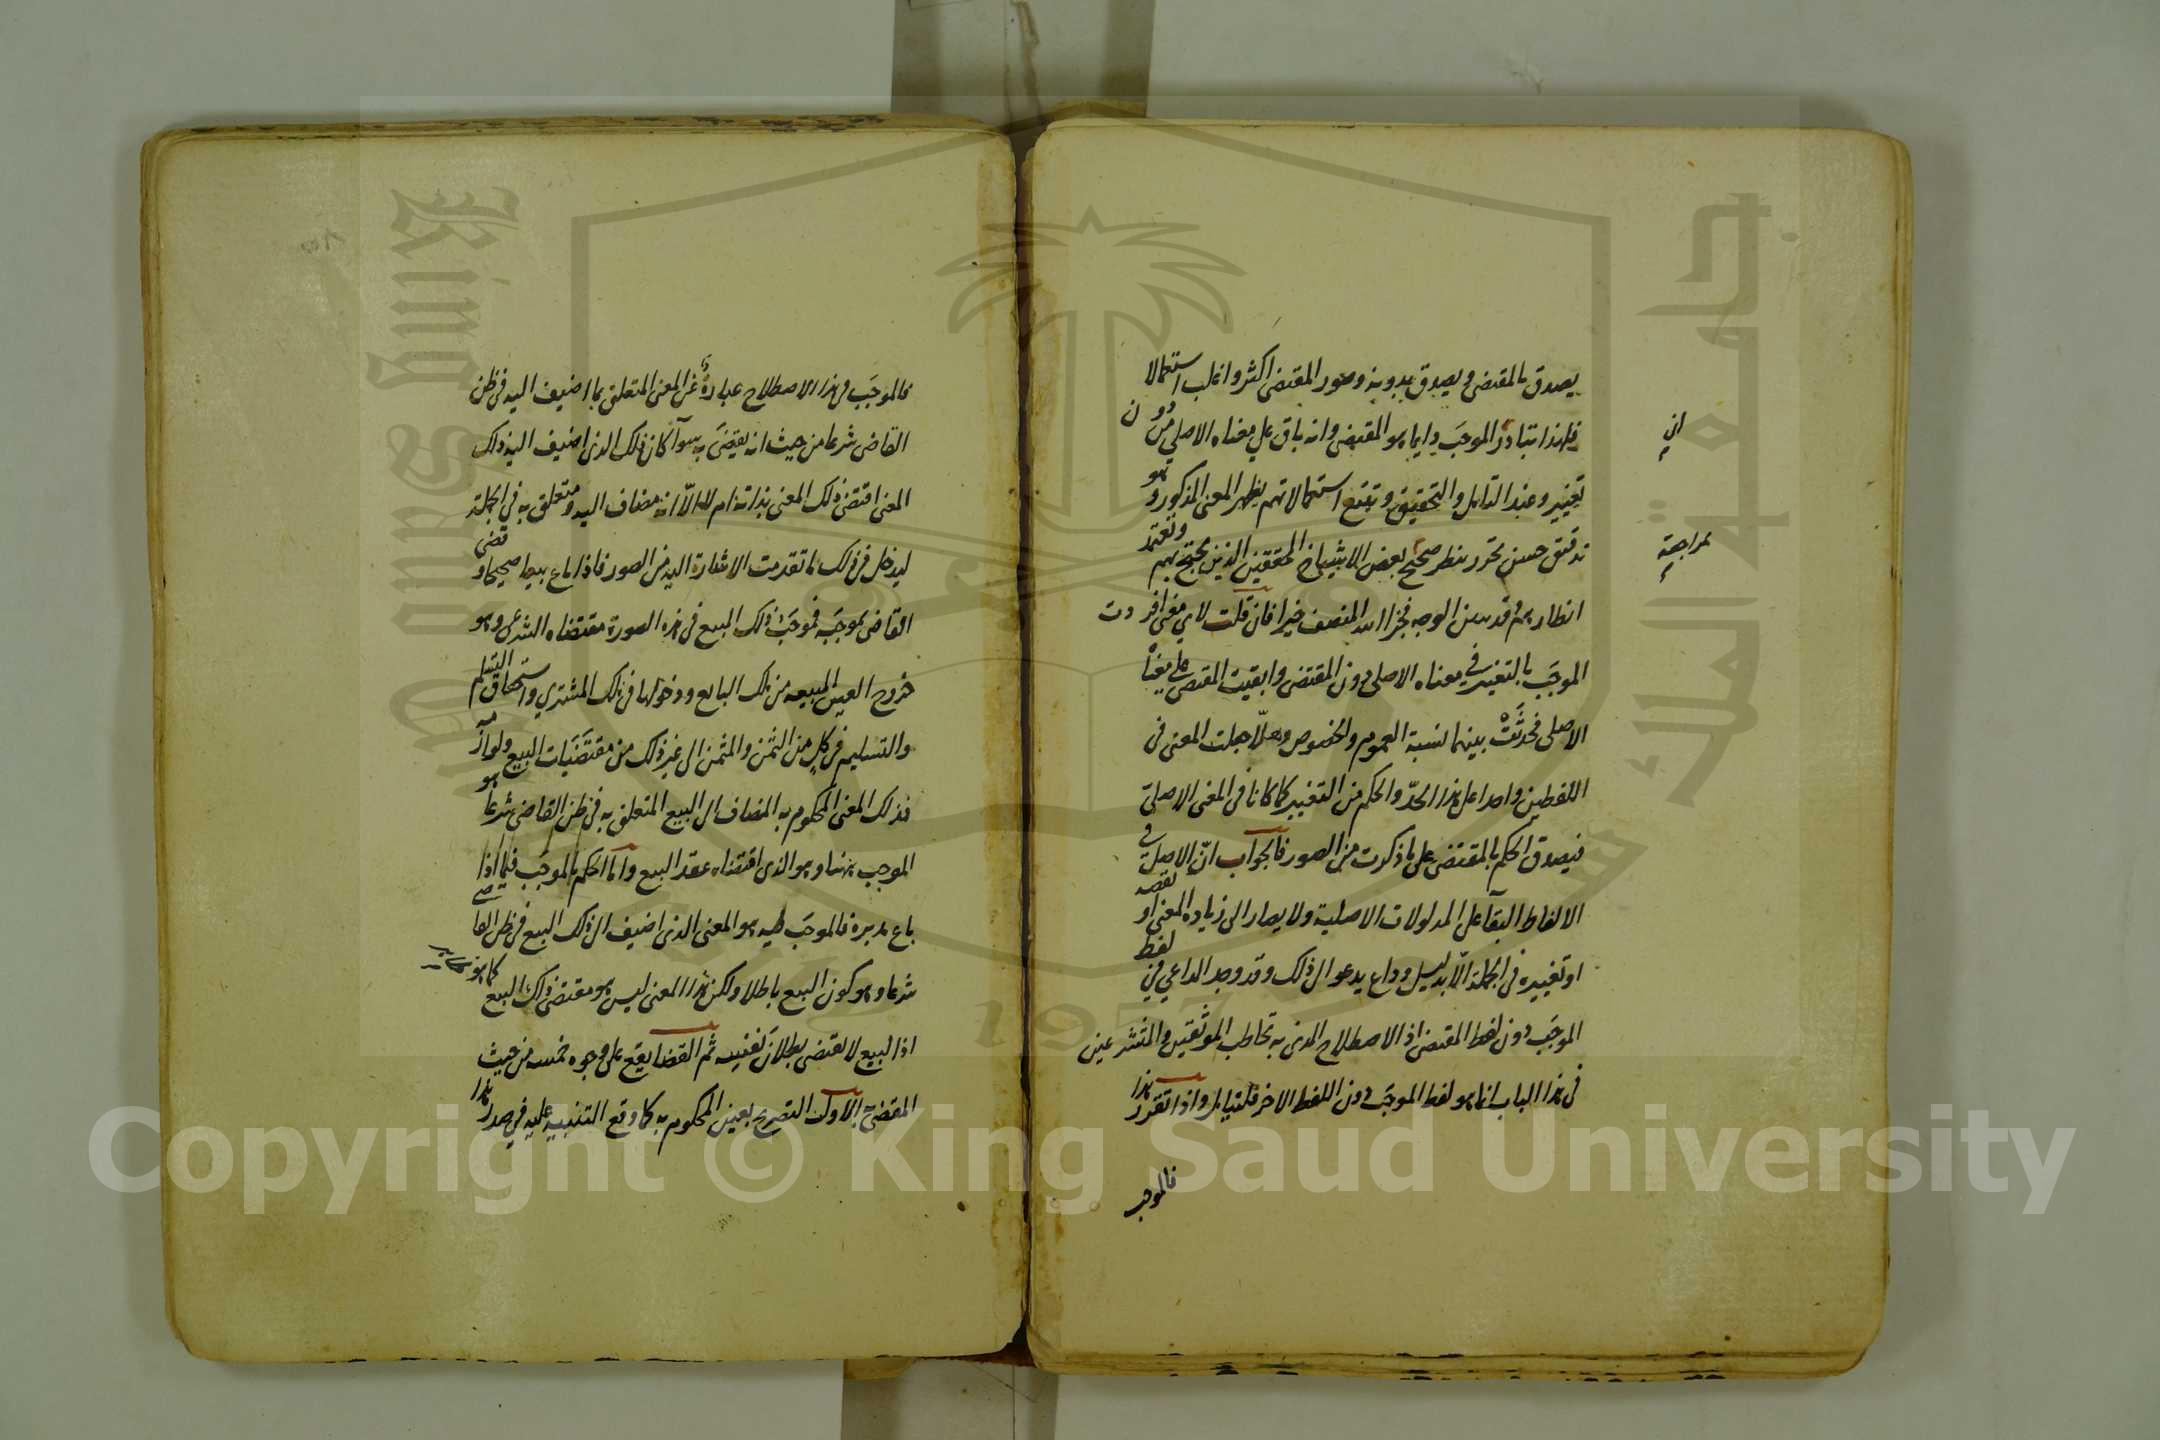 يصدق بالمقتضى ويصدق بدونه وصور المقتضى اكثر واغلب استعمالا
فلهذا تبادر الموجَب وايما هو المقتضى وانه باق على معناه الاصلي من دون
تغيير وعند التامل والتحقيق وتتبع استعمالاتهم يظهر المعنى المذكور وهو
تدقيق حسن تحرر بنظر صحيح بعض الاشياخ المحققين الذين يحتج بهم وتعتمد
انظارهم وقد بين الوجه فجزا الله المنصف خيرا فان قلت لاي معنى افردت
الموجَب بالتغير في معناه الاصلي دون المقتضى وابقيت المقتضى على معناه
الاصلي فحدثَتْ بينهما نسبة العموم والخصوص وهلّا جعلت المعنى في
اللفظين واحدا على هذا الحدّ والحكم من التغيير كما كانا في المعنى الاصلي
فيصدق الحكم بالمقتضى على ما ذكرت من الصور فالجواب انّ الاصل في
الالفاظ البقا على المدلولات الاصلية ولا يصار الى زيادة المعنى او نقصه
او تغييره في الجملة الّا بدليل وداع يدعو الى ذلك وقد وجد الداعي في لفظ
الموجَب دون لفظ المقتضى اذ الاصطلاح الذي به تخاطب الموثقين والمتشرعين
في هذا الباب انما هو لفظ الموجَب دون اللفظ الاخر واذا تقرر هذا
فالموجب
انه
بمراجعة
فالموجَب في هذا الاصطلاح عبارة عن المعنى المتعلق بما اضيف اليه في ظن
القاضي شرعا من حيث انه يقضى به سوآ كان ذلك الذي اضيف اليه ذلك
المعنى اقتضى ذلك المعنى بذاته ام لا الّا انه مضاف اليه ومتعلق به في الجملة
ليدخل في ذلك ما تقدمت الاشارة اليه من الصور فاذا باع بيعا صحيحا وقضى
القاضي بموجَبه فموجَب ذلك البيع في هذه الصورة مقتضاه الشرعي وهو
خروج العين المبيعه من ملك البايع ودخولها في ملك المشتري واستحقاق التسلم
والتسليم في كل من الثمن والمثمن الى غير ذلك من مقتضَيَات البيع ولوازمه
فذلك المعنى المحكوم به المضاف الى البيع المتعلق به في ظن القاضي شرعا هو
الموجب ههنا وهو الذي اقتضاه عقد البيع واما الحكم بالموجَب فيما اذا
باع مدبره فالموجَب فيه هو المعنى الذي اضيف الى ذلك البيع في ظن القاضي
شرعا وهو كون البيع باطلا ولكن هذا المعنى ليس هو مقتضى ذلك البيع كما هو
اذ البيع لا يقتضي بطلان نفسه ثم القضا يقع على وجوه خمسه من حيث
المقضي به الاول التصريح بعين المحكوم به كما وقع التنبيه عليه في صدر هذا
Copyright © King Saud University
King Saud University
جامعة الملك سعود
1957